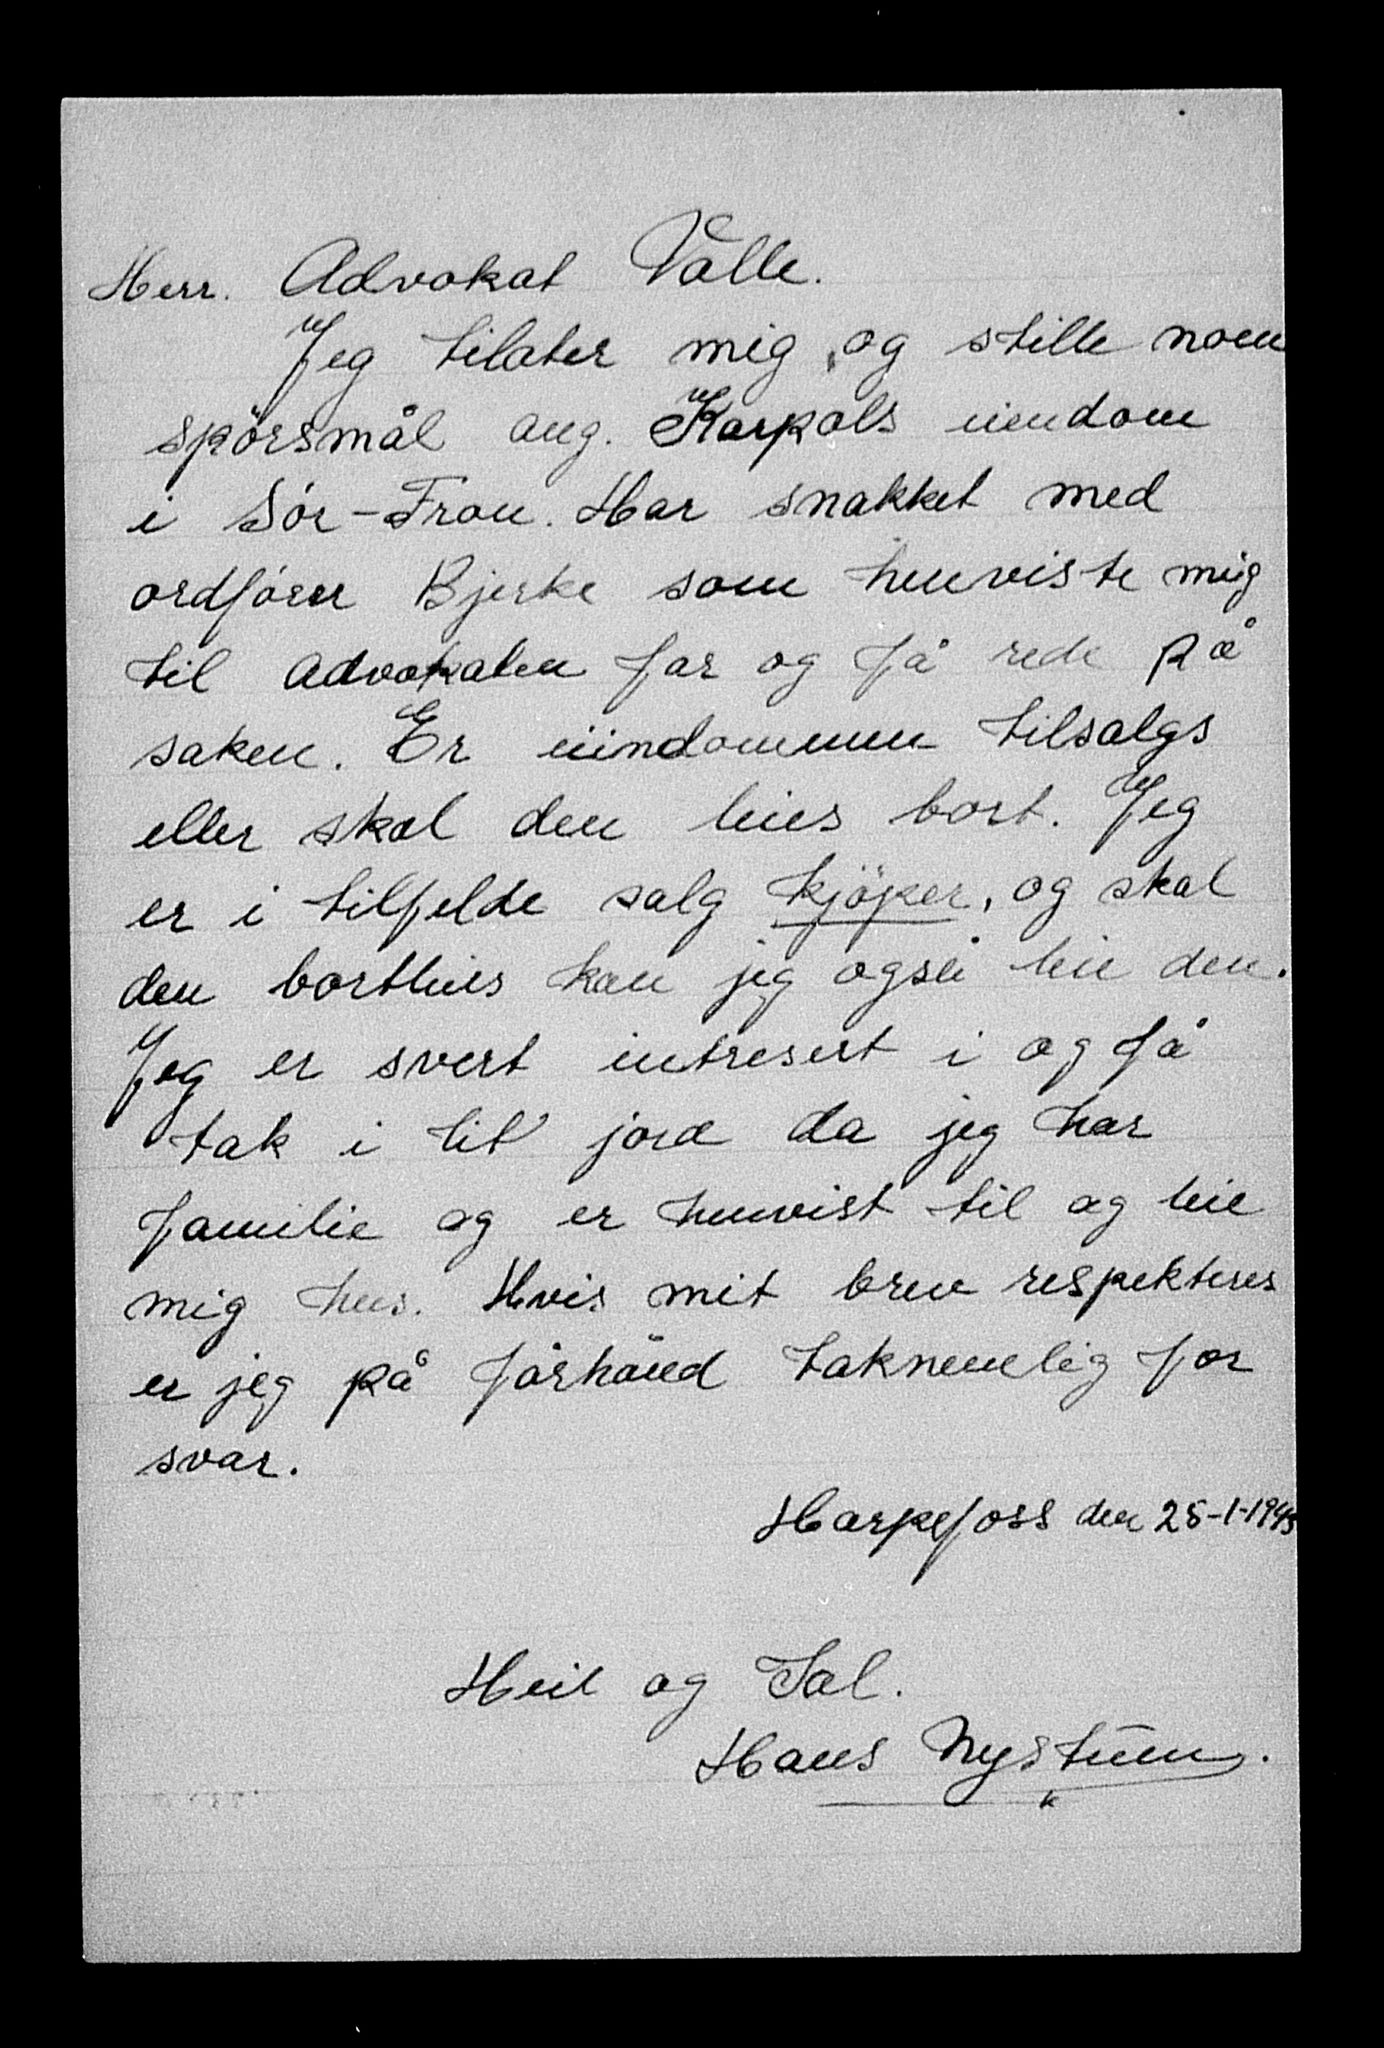 Herr. Advokat Valle.
Jeg tilater mig, og stille noen
spörsmål ang. Karpols eiendom
i Sör-Fron. Har snakket med
ordförer Bjerke som henviste mig
til advokaten for og få rede på
saken. Er eiindommen tilsalgs
eller skal den leies bort. Jeg
er i tilfelde salg kjöper, og skal
den bortleies kan jeg også leie den.
Jeg er svert intresert i og få
tak i lit jord da jeg har
familie og er henvist til og leie
mig hus. Hvis mit brev respekteres
er jeg på forhånd taknemlig for
svar.
Harpefoss den 25-1-1943
Heil og Sæl.
Hans Nystuen.